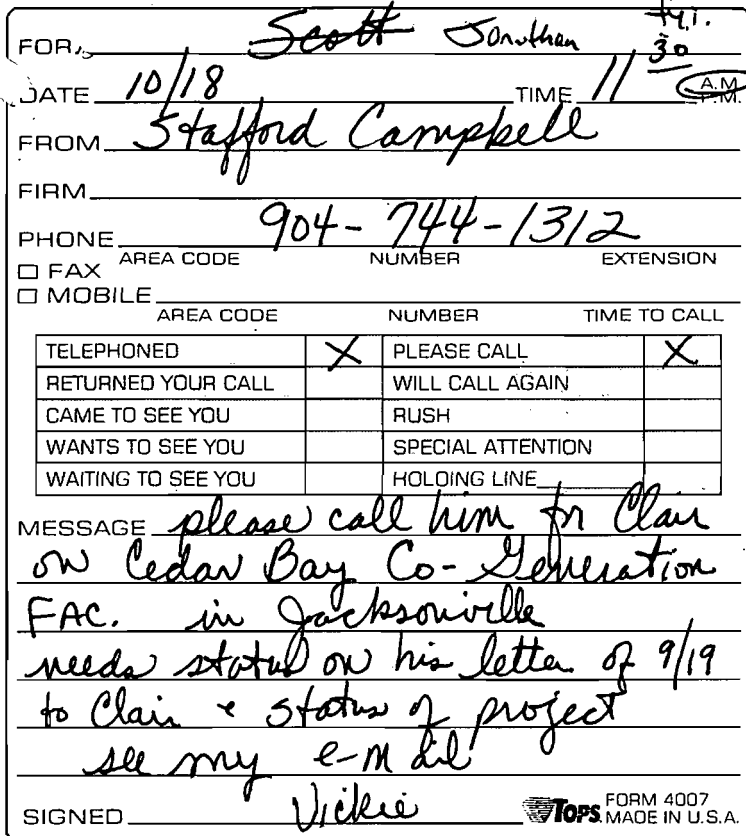 fyi.
FOR Scott Jonathan
DATE 10/18 TIME 11 30 A.M. P.M.
FROM Stafford Campbell
FIRM
PHONE 904-744-1312
AREA CODE NUMBER EXTENSION
☐ FAX
☐ MOBILE
AREA CODE NUMBER TIME TO CALL
TELEPHONED X PLEASE CALL X
RETURNED YOUR CALL WILL CALL AGAIN
CAME TO SEE YOU RUSH
WANTS TO SEE YOU SPECIAL ATTENTION
WAITING TO SEE YOU HOLDING LINE
MESSAGE please call him for Clair
on Cedar Bay Co-Generation
FAC. in Jacksonville
needs status on his letter of 9/19
to Clair & status of project
see my e-mail
SIGNED Vickie TOPS FORM 4007
MADE IN U.S.A.